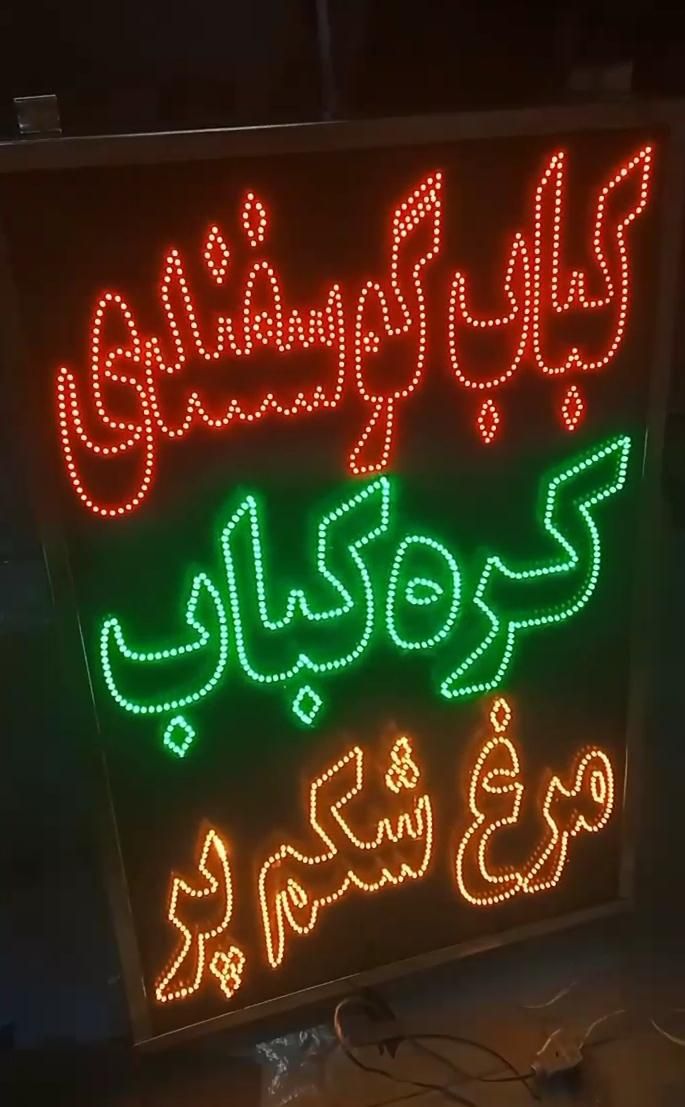 کباب گوسفندی
کره کباب
مرغ شکم پر